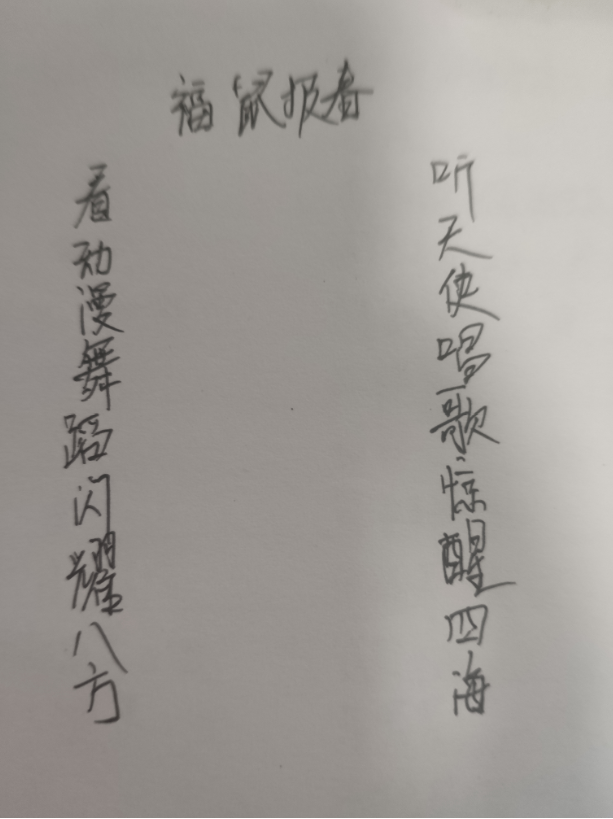 福鼠报春
听天使唱歌惊醒四海
看动漫舞蹈闪耀八方